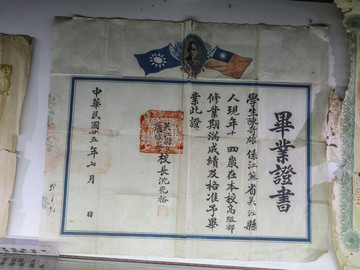 畢業證書
學生 係江蘇省吳江縣
人現年十四歲在本校高級部
修業期滿成績及格准予畢
業此證
校長沈
中華民國廿五年七月 日